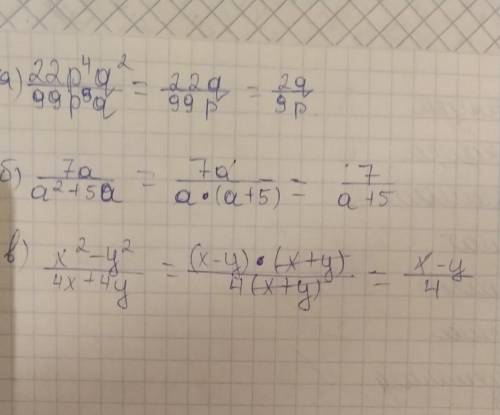 а) 22p⁴q² / 99p⁵q = 22q / 99p = 2q / 9p
б) 7a / a²+5a = 7a / a•(a+5) = 7 / a+5
в) x²-y² / 4x+4y = (x-y)•(x+y) / 4(x+y) = x-y / 4